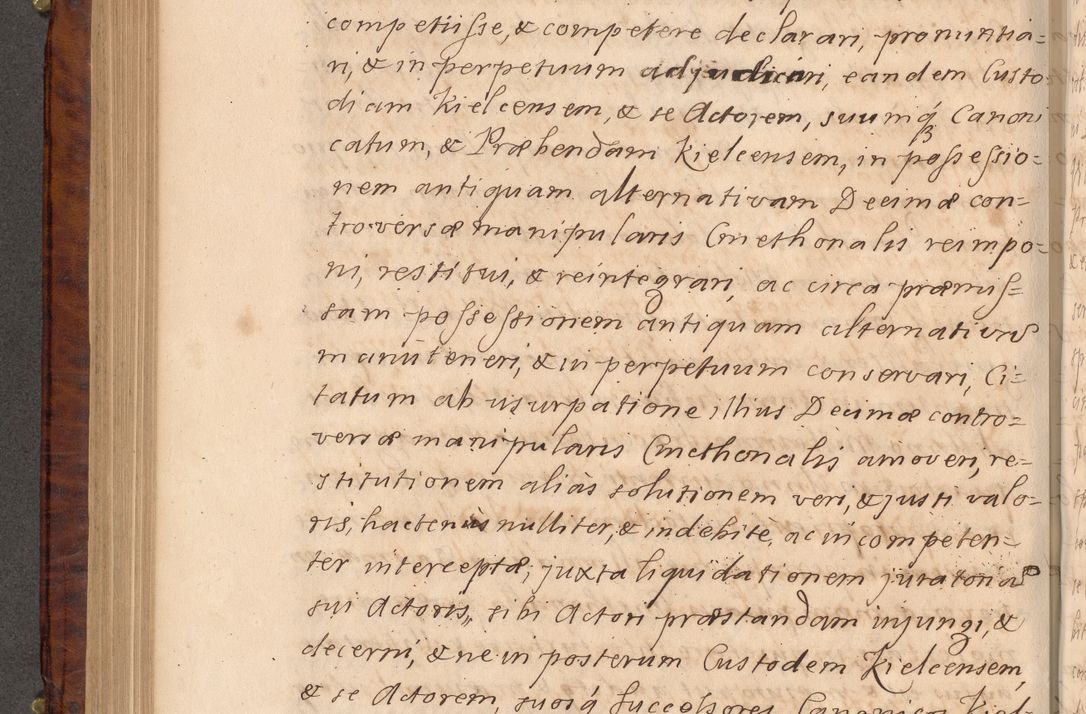 competiisse, & competere declarari, pronuntia=
ri, & in perpetuum adjudicari, eandem Custo=
diam Kielcensem, & se Actorem, suumq́ Canoni
catum, & Præbendam Kielcensem, in possessio=
nem antiquam alternativam Decimæ con=
troversæ manipularis Cmethonalis reimpo=
ni, restitui, & reintegrari, ac circa præmis=
sam possessionem antiquam alternativã
manuteneri, & in perpetuum conservari, Ci=
tatum ab usurpatione illius Decimæ contro=
versæ manipularis Cmethonalis amoveri, re=
stitutionem aliàs solutionem veri, & justi valo=
ris, hactenùs nulliter, & indebitè, ac incompeten=
ter interceptæ, juxta liquidationem juratoriã
sui Actoris, sibi Actori præstandam injungi, &
decerni, & ne in posterum Custodem Kielcensem,
& se Actorem, suosq́ Successores Canonicos Kiel=